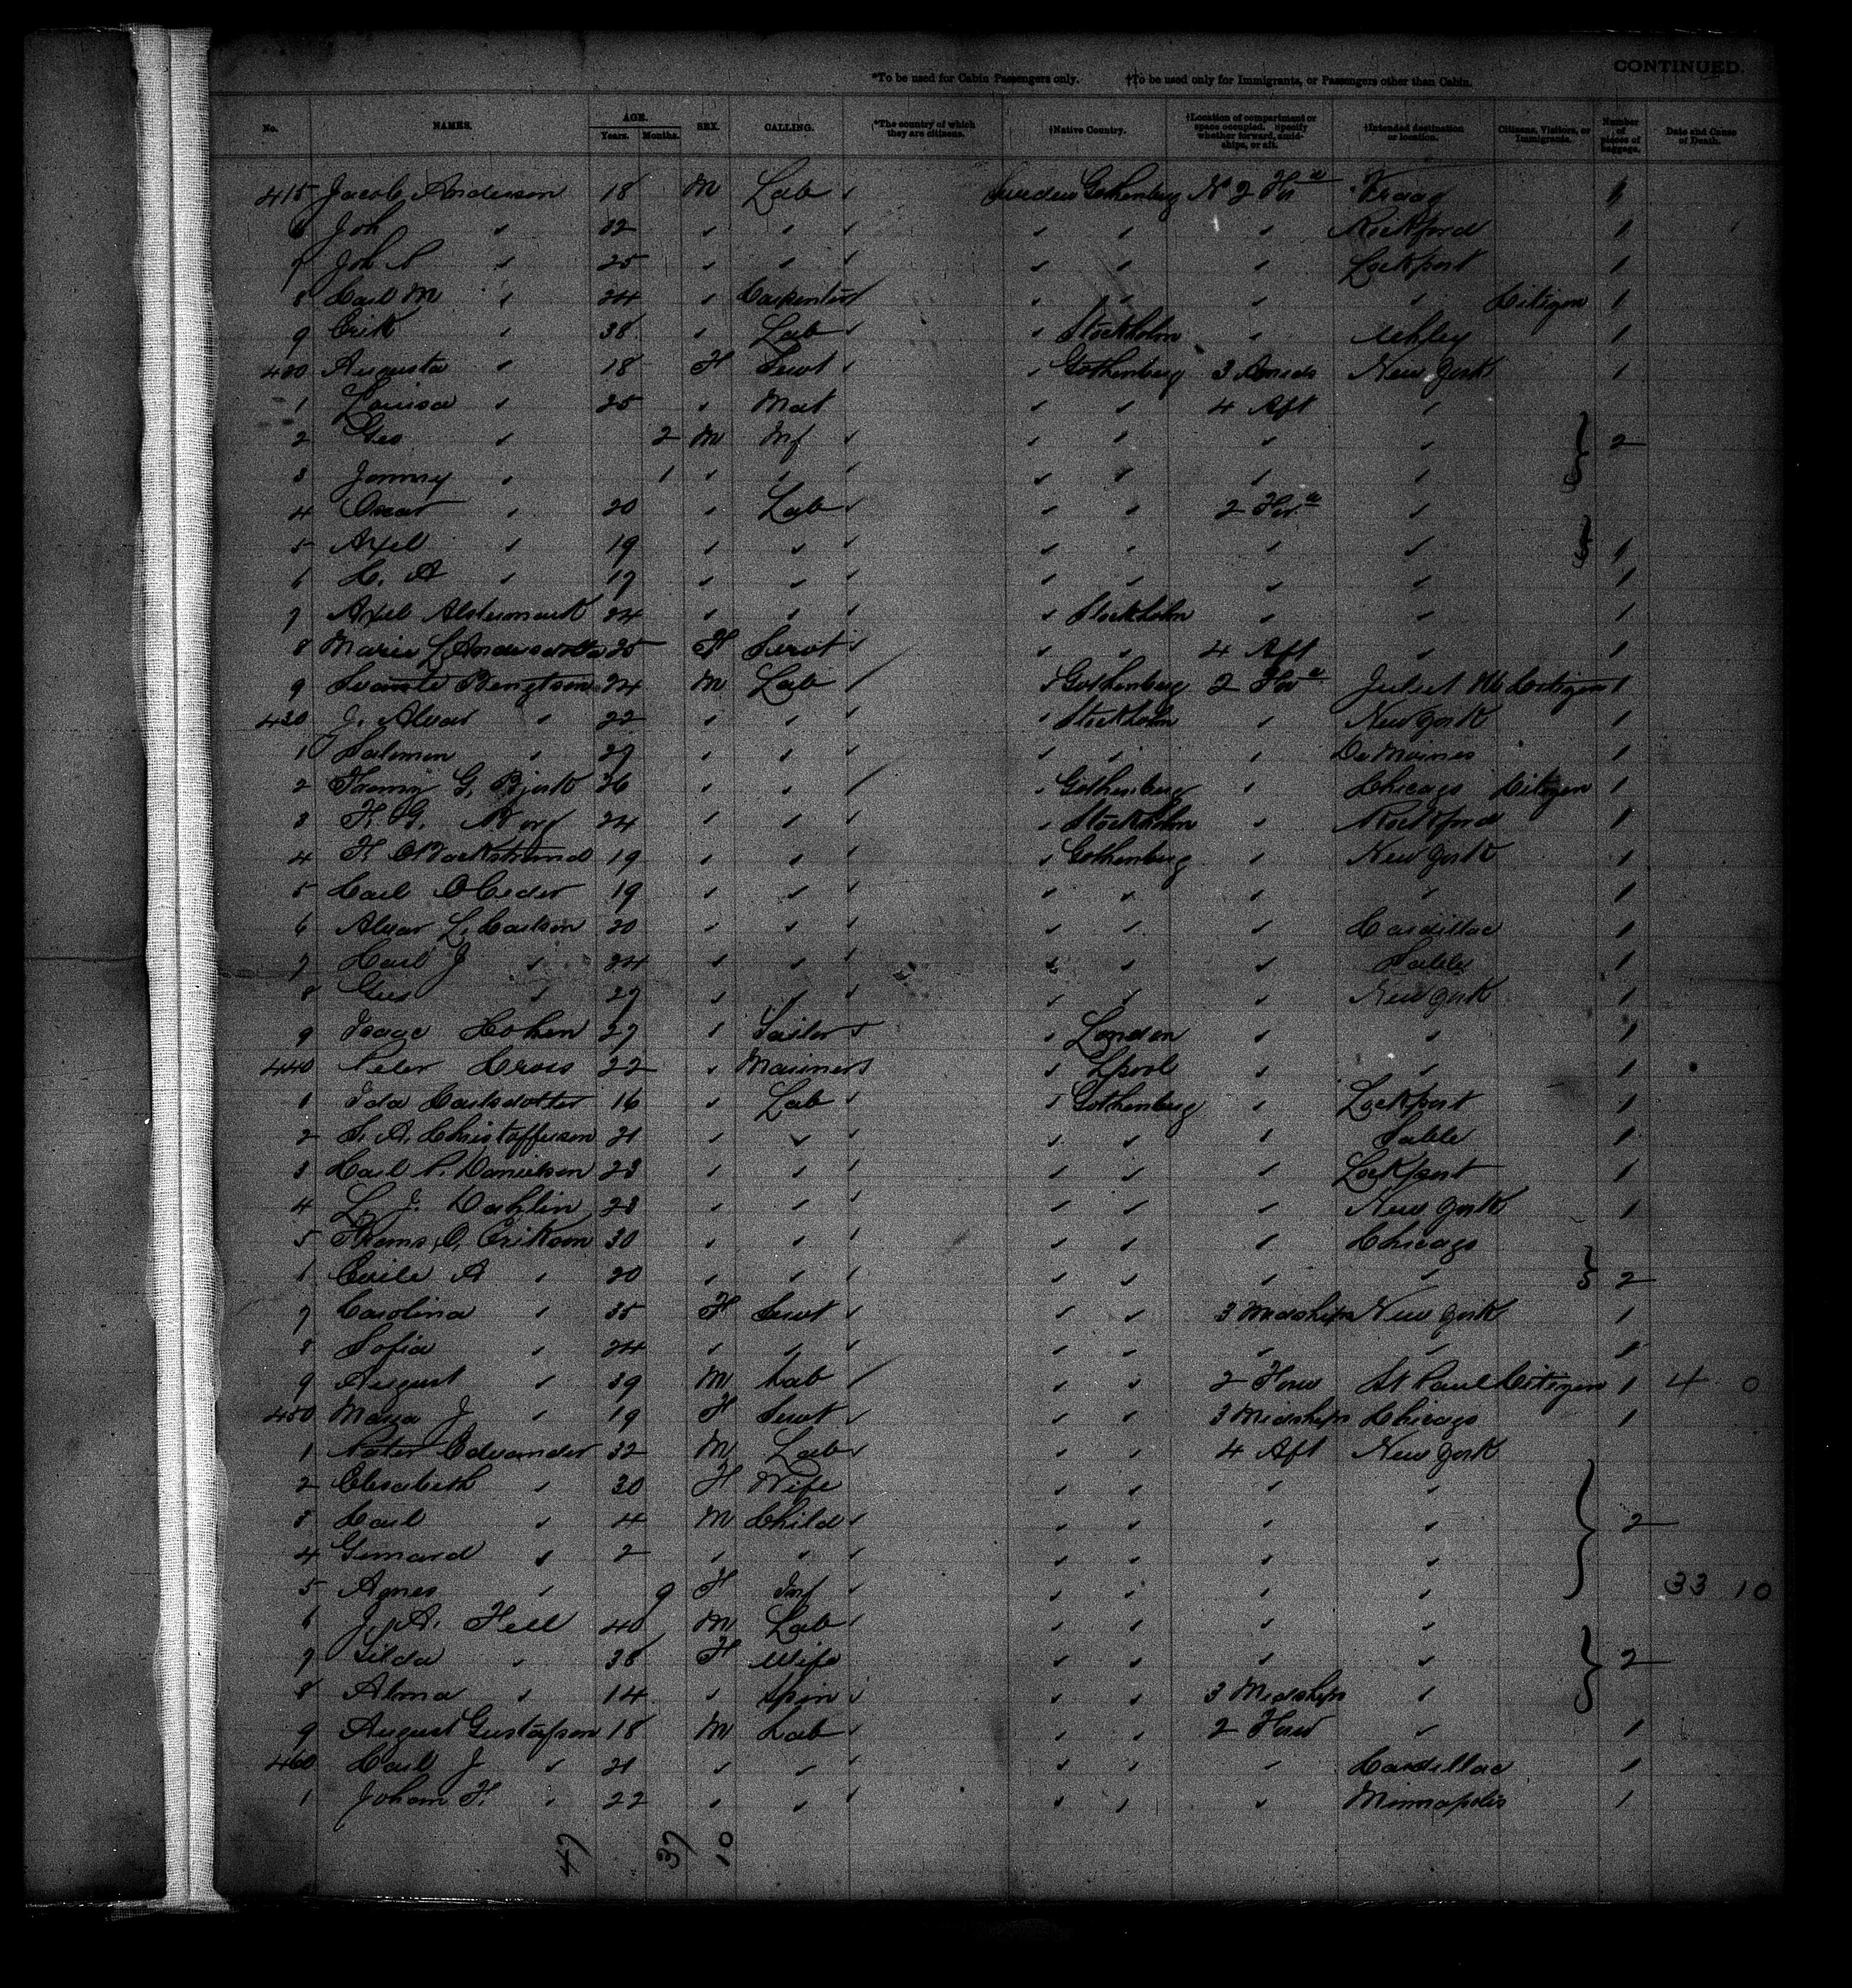 CONTINUED.
*To be used for Cabin Passengers only. †To be used only for Immigrants, or Passengers other than Cabin.
No. NAMES. AGE. Years. Months. SEX. CALLING. *The country of which they are citizens. †Native Country. †Location of compartment or space occupied. Specify whether forward, amidships, or aft. †Intended destination or location. Citizens, Visitors, or Immigrants. Number of pieces of baggage. Date and Cause of Death.
415 Jacob Anderson 18 M Lab ✓ Sweden Gothenburg No 2 For^d 1
6 Joh ✓ 32 ✓ ✓ ✓ ✓ ✓ ✓ Rockford 1
7 Joh P ✓ 25 ✓ ✓ ✓ ✓ ✓ ✓ Lockport 1
8 Carl M ✓ 24 ✓ Carpenter ✓ ✓ ✓ ✓ ✓ Citizen 1
9 Erik ✓ 38 ✓ Lab ✓ ✓ Stockholm ✓ Ashley 1
420 Augusta ✓ 18 F Servt ✓ ✓ Gothenburg 3 Amids New York 1
1 Louisa ✓ 25 ✓ Mat ✓ ✓ 4 Aft ✓
2 Geo ✓ 2 M Inf ✓ ✓ ✓ ✓ ✓ 2
3 Jonny ✓ 1 ✓ ✓ ✓ ✓ ✓ ✓ ✓
4 Oscar ✓ 20 ✓ Lab ✓ ✓ ✓ 2 For^d ✓
5 Axel ✓ 19 ✓ ✓ ✓ ✓ ✓ ✓ ✓ 1
6 C. A ✓ 17 ✓ ✓ ✓ ✓ ✓ ✓ ✓ 1
7 Axel Alstermark 24 ✓ ✓ ✓ ✓ Stockholm ✓ ✓ 1
8 Maria L Andersdotter 25 F Servt ✓ ✓ ✓ 4 Aft ✓ 1
9 Svante Bengtson 24 M Lab ✓ ✓ Gothenburg 2 For^d Citizen 1
430 J. Alvar ✓ 22 ✓ ✓ ✓ ✓ Stockholm ✓ New York 1
1 Salomon ✓ 27 ✓ ✓ ✓ ✓ ✓ ✓ De Moines 1
2 G. Bjork 26 ✓ ✓ ✓ ✓ Gothenburg ✓ Chicago Citizen 1
3 F. G. 24 ✓ ✓ ✓ ✓ Stockholm ✓ Rockford 1
4 F. O Backstrand 19 ✓ ✓ ✓ ✓ Gothenburg ✓ New York 1
5 Carl O Ceder 19 ✓ ✓ ✓ ✓ ✓ ✓ ✓ 1
6 Alvar L. Carlson 20 ✓ ✓ ✓ ✓ ✓ ✓ Cardillac 1
7 Carl J ✓ 24 ✓ ✓ ✓ ✓ ✓ ✓ 1
8 Gus ✓ 27 ✓ ✓ ✓ ✓ ✓ ✓ New York 1
9 Isaac Cohen 27 ✓ Tailor ✓ ✓ London ✓ ✓ 1
440 Peter Cross 22 ✓ Mariner ✓ ✓ Lpool ✓ ✓ 1
1 Ida Carlsdotter 16 ✓ Lab ✓ ✓ Gothenburg ✓ Lockport 1
2 S. A. Christofferson 21 ✓ ✓ ✓ ✓ ✓ ✓ 1
3 Carl P. Danielson 23 ✓ ✓ ✓ ✓ ✓ ✓ Lockport 1
4 L. J. Dahlin 23 ✓ ✓ ✓ ✓ ✓ ✓ New York 1
5 Thoms O. Erikson 30 ✓ ✓ ✓ ✓ ✓ ✓ Chicago
6 A ✓ 20 ✓ ✓ ✓ ✓ ✓ ✓ ✓ 2
7 Carolina ✓ 35 F Servt ✓ ✓ ✓ 3 Midships New York 1
8 Sofia ✓ 24 ✓ ✓ ✓ ✓ ✓ ✓ ✓ 1
9 August ✓ 39 M Lab ✓ ✓ ✓ 2 Forw St Paul Citizen 1 4 0
450 Maria J ✓ 19 F Servt ✓ ✓ ✓ 3 Midships Chicago 1
1 Edvander 32 M Lab ✓ ✓ ✓ 4 Aft New York
2 Elisabeth ✓ 30 F Wife ✓ ✓ ✓ ✓
3 Carl ✓ 4 M Child ✓ ✓ ✓ ✓ ✓ 2
4 ✓ 2 ✓ ✓ ✓ ✓ ✓ ✓ ✓
5 Agnes ✓ 9 F Inf ✓ ✓ ✓ ✓ ✓ 33 10
6 J. A. Fell 40 M Lab ✓ ✓ ✓ ✓ ✓
7 ✓ 38 F Wife ✓ ✓ ✓ ✓ 2
8 Alma ✓ 14 ✓ Spin ✓ ✓ ✓ 3 Midships ✓
9 August Gustafson 18 M Lab ✓ ✓ ✓ 2 Forw ✓ 1
460 Carl J ✓ 21 ✓ ✓ ✓ ✓ ✓ ✓ Cardillac 1
1 Johan F. ✓ 22 ✓ ✓ ✓ ✓ ✓ ✓ Minnapolis 1
47 37 10